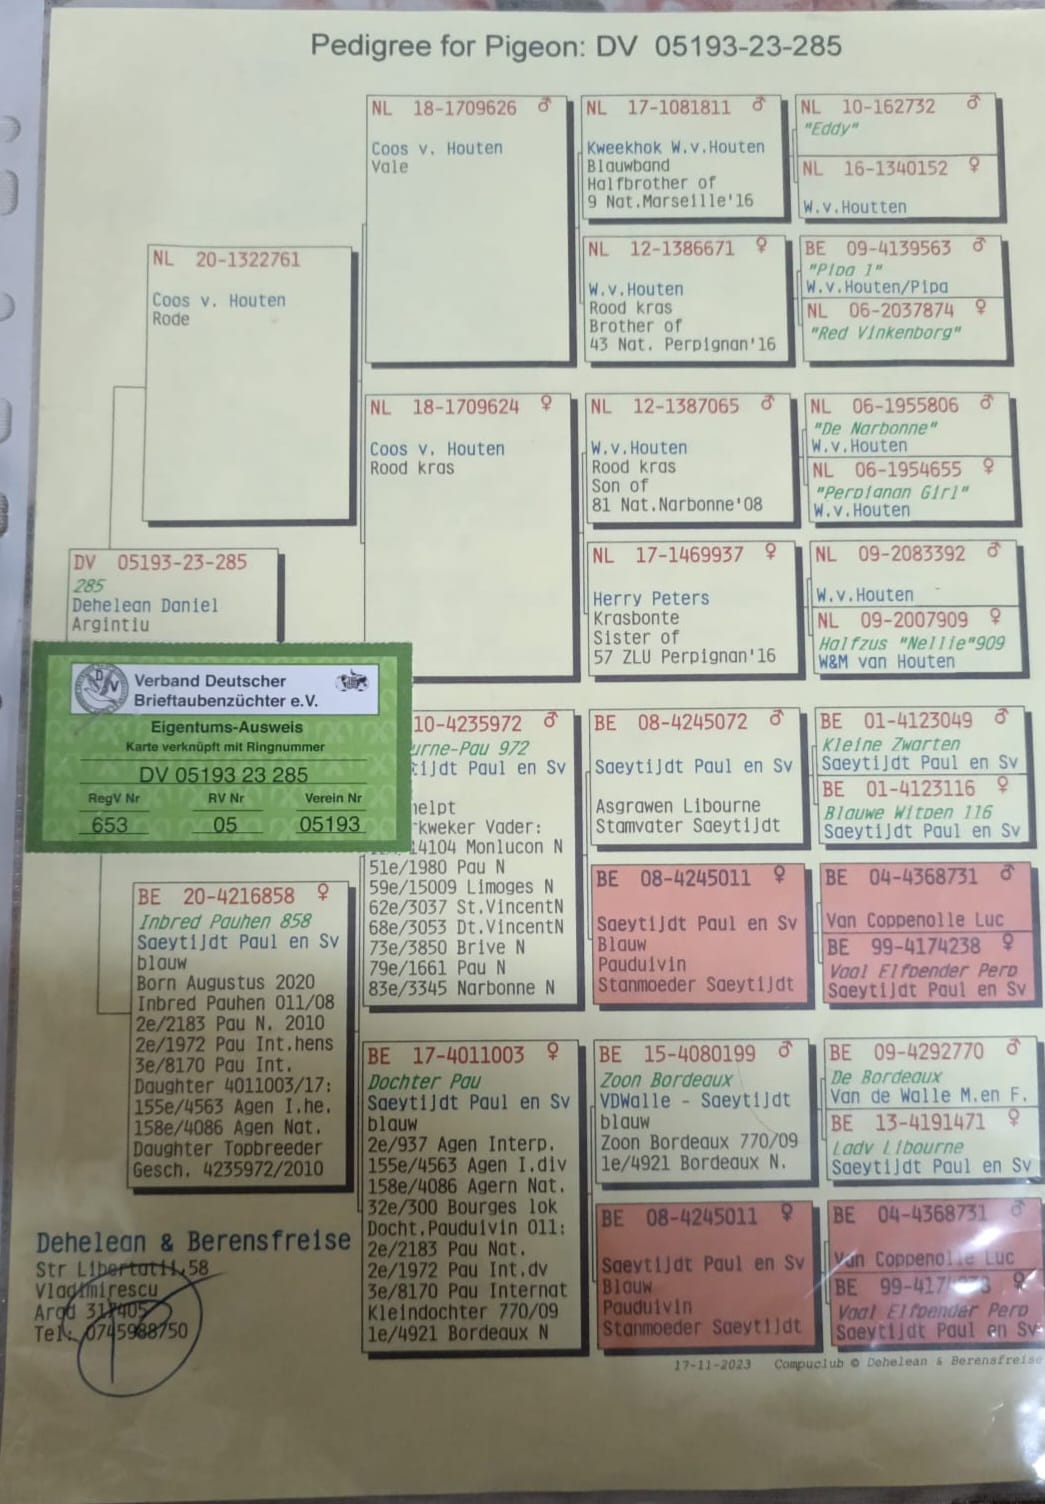 Pedigree for Pigeon: DV 05193-23-285
NL 18-1709626 ♂
Coos v. Houten
Vale
NL 17-1081811 ♂
Kweekhok W.v.Houten
Blauwband
Halfbrother of
9 Nat.Marseille'16
NL 10-162732 ♂
"Eddy"
NL 16-1340152 ♀
W.v.Houtten
NL 12-1386671 ♀
W.v.Houten
Rood kras
Brother of
43 Nat. Perpignan'16
BE 09-4139563 ♂
"Pipa 1"
W.v.Houten/Pipa
NL 06-2037874 ♀
"Red Vinkenborg"
NL 20-1322761
Coos v. Houten
Rode
NL 18-1709624 ♀
Coos v. Houten
Rood kras
NL 12-1387065 ♂
W.v.Houten
Rood kras
Son of
81 Nat.Narbonne'08
NL 06-1955806 ♂
"De Narbonne"
W.v.Houten
NL 06-1954655 ♀
"Perpignan Girl"
W.v.Houten
NL 17-1469937 ♀
Herry Peters
Krasbonte
Sister of
57 ZLU Perpignan'16
NL 09-2083392 ♂
W.v.Houten
NL 09-2007909 ♀
Halfzus "Nellie"909
W&M van Houten
DV 05193-23-285
285
Dehelean Daniel
Argintiu
Verband Deutscher
Brieftaubenzüchter e.V.
Eigentums-Ausweis
Karte verknüpft mit Ringnummer
DV 05193 23 285
RegV Nr RV Nr Verein Nr
653 05 05193
10-4235972 ♂
urne-Pau 972
tijdt Paul en Sv
helpt
rkweker Vader:
14104 Monlucon N
51e/1980 Pau N
59e/15009 Limoges N
62e/3037 St.VincentN
68e/3053 Dt.VincentN
73e/3850 Brive N
79e/1661 Pau N
83e/3345 Narbonne N
BE 08-4245072 ♂
Saeytijdt Paul en Sv
Asgrawen Libourne
Stamvater Saeytijdt
BE 01-4123049 ♂
Kleine Zwarten
Saeytijdt Paul en Sv
BE 01-4123116 ♀
Blauwe Witpen 116
Saeytijdt Paul en Sv
BE 08-4245011 ♀
Saeytijdt Paul en Sv
Blauw
Pauduivin
Stanmoeder Saeytijdt
BE 04-4368731 ♂
Van Coppenolle Luc
BE 99-4174238 ♀
Vaal Elfpender Perp
Saeytijdt Paul en Sv
BE 20-4216858 ♀
Inbred Pauhen 858
Saeytijdt Paul en Sv
blauw
Born Augustus 2020
Inbred Pauhen 011/08
2e/2183 Pau N. 2010
2e/1972 Pau Int.hens
3e/8170 Pau Int.
Daughter 4011003/17:
155e/4563 Agen I.he.
158e/4086 Agen Nat.
Daughter Topbreeder
Gesch. 4235972/2010
BE 17-4011003 ♀
Dochter Pau
Saeytijdt Paul en Sv
blauw
2e/937 Agen Interp.
155e/4563 Agen I.div
158e/4086 Agern Nat.
32e/300 Bourges lok
Docht.Pauduivin 011:
2e/2183 Pau Nat.
2e/1972 Pau Int.dv
3e/8170 Pau Internat
Kleindochter 770/09
1e/4921 Bordeaux N
BE 15-4080199 ♂
Zoon Bordeaux
VDWalle - Saeytijdt
blauw
Zoon Bordeaux 770/09
1e/4921 Bordeaux N.
BE 09-4292770 ♂
De Bordeaux
Van de Walle M.en F.
BE 13-4191471 ♀
Lady Libourne
Saeytijdt Paul en Sv
BE 08-4245011 ♀
Saeytijdt Paul en Sv
Blauw
Pauduivin
Stanmoeder Saeytijdt
BE 04-4368731 ♂
Van Coppenolle Luc
BE 99-4174238 ♀
Vaal Elfpender Perp
Saeytijdt Paul en Sv
Dehelean & Berensfreise
Str Libertatii,58
Vladimirescu
Arad 317405
Tel: 0745988750
17-11-2023 Compuclub © Dehelean & Berensfreise